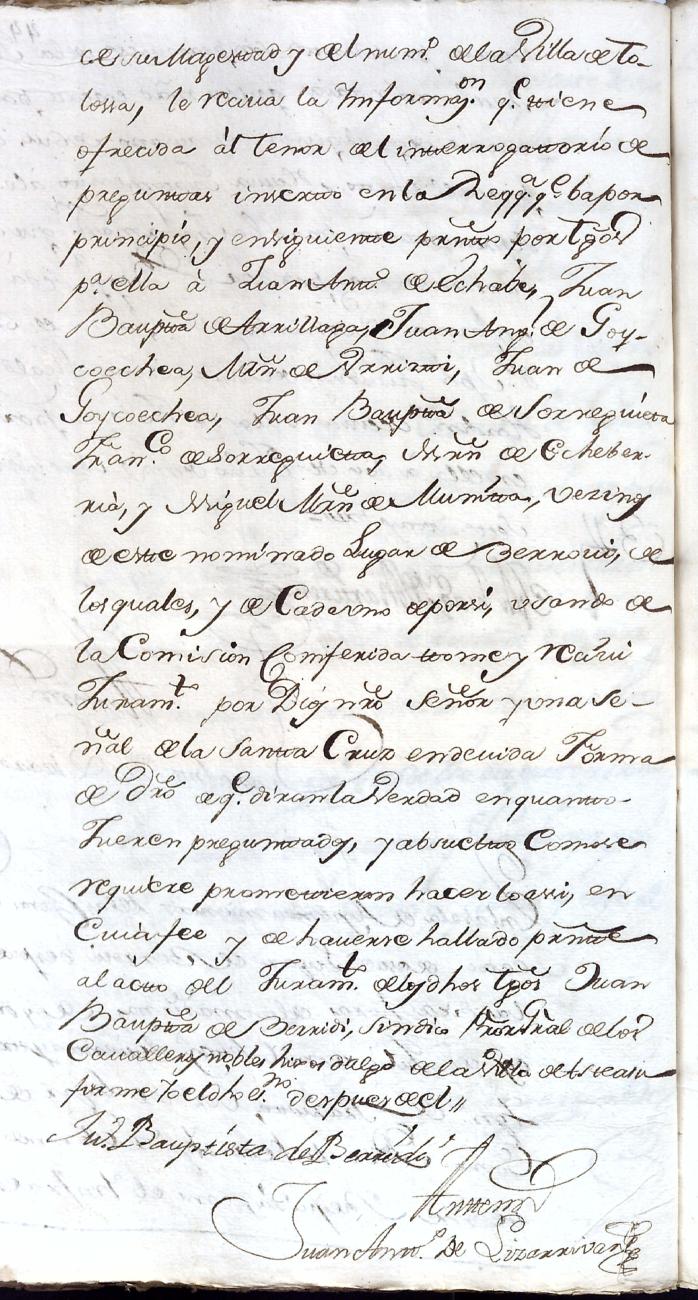 de su Magestad y del num.º de la Villa de To-
lossa, le reciva la Informaz.on q.e tiene
ofrecida àl tenor del interrogattorio de
preguntas inserto en la Reqq.a q.e ba por
principio, y en siguiente presentto por tgõs
p.a ella à Juan Antt.º de Echabe, Juan
Bauptta de Arrillaga, Juan Anp.º de Goy-
coechea, Mrñ de Vrrizti, Juan de
Goycoechea, Juan Bauptta de Sorreguieta
Fran.co de Sorreguietta, Mrñ de Echeber-
rià, y Miguel Mrñ de Munitta, vezinos
de este nominado Lugar de Berrovi, de
los quales, y de Cada vno de por si, vsando de
la Comision Comferida tome y recivi
Juram.t por Dios nrõ señor y vna se-
ñal de la Santta Cruz en devida Forma
de Drõ de q.e diran la Verdad en quantto
Fueren preguntados, y absuelto Como se
requiere prometieron hacer lo assi, en
Cuia fee y de haverse hallado presentte
al àcto del Juram.t de los dhos tgõs Juan
Bauptta de Berridi, sindico Prõr Gral de los
Cavalleros nobles hijos dalgo de la Villa de
firme Yo el dho es.no despues de el //
Ju.º Bauptista de Berridi
Antemi
Juan Antt.º de Lizarrivar